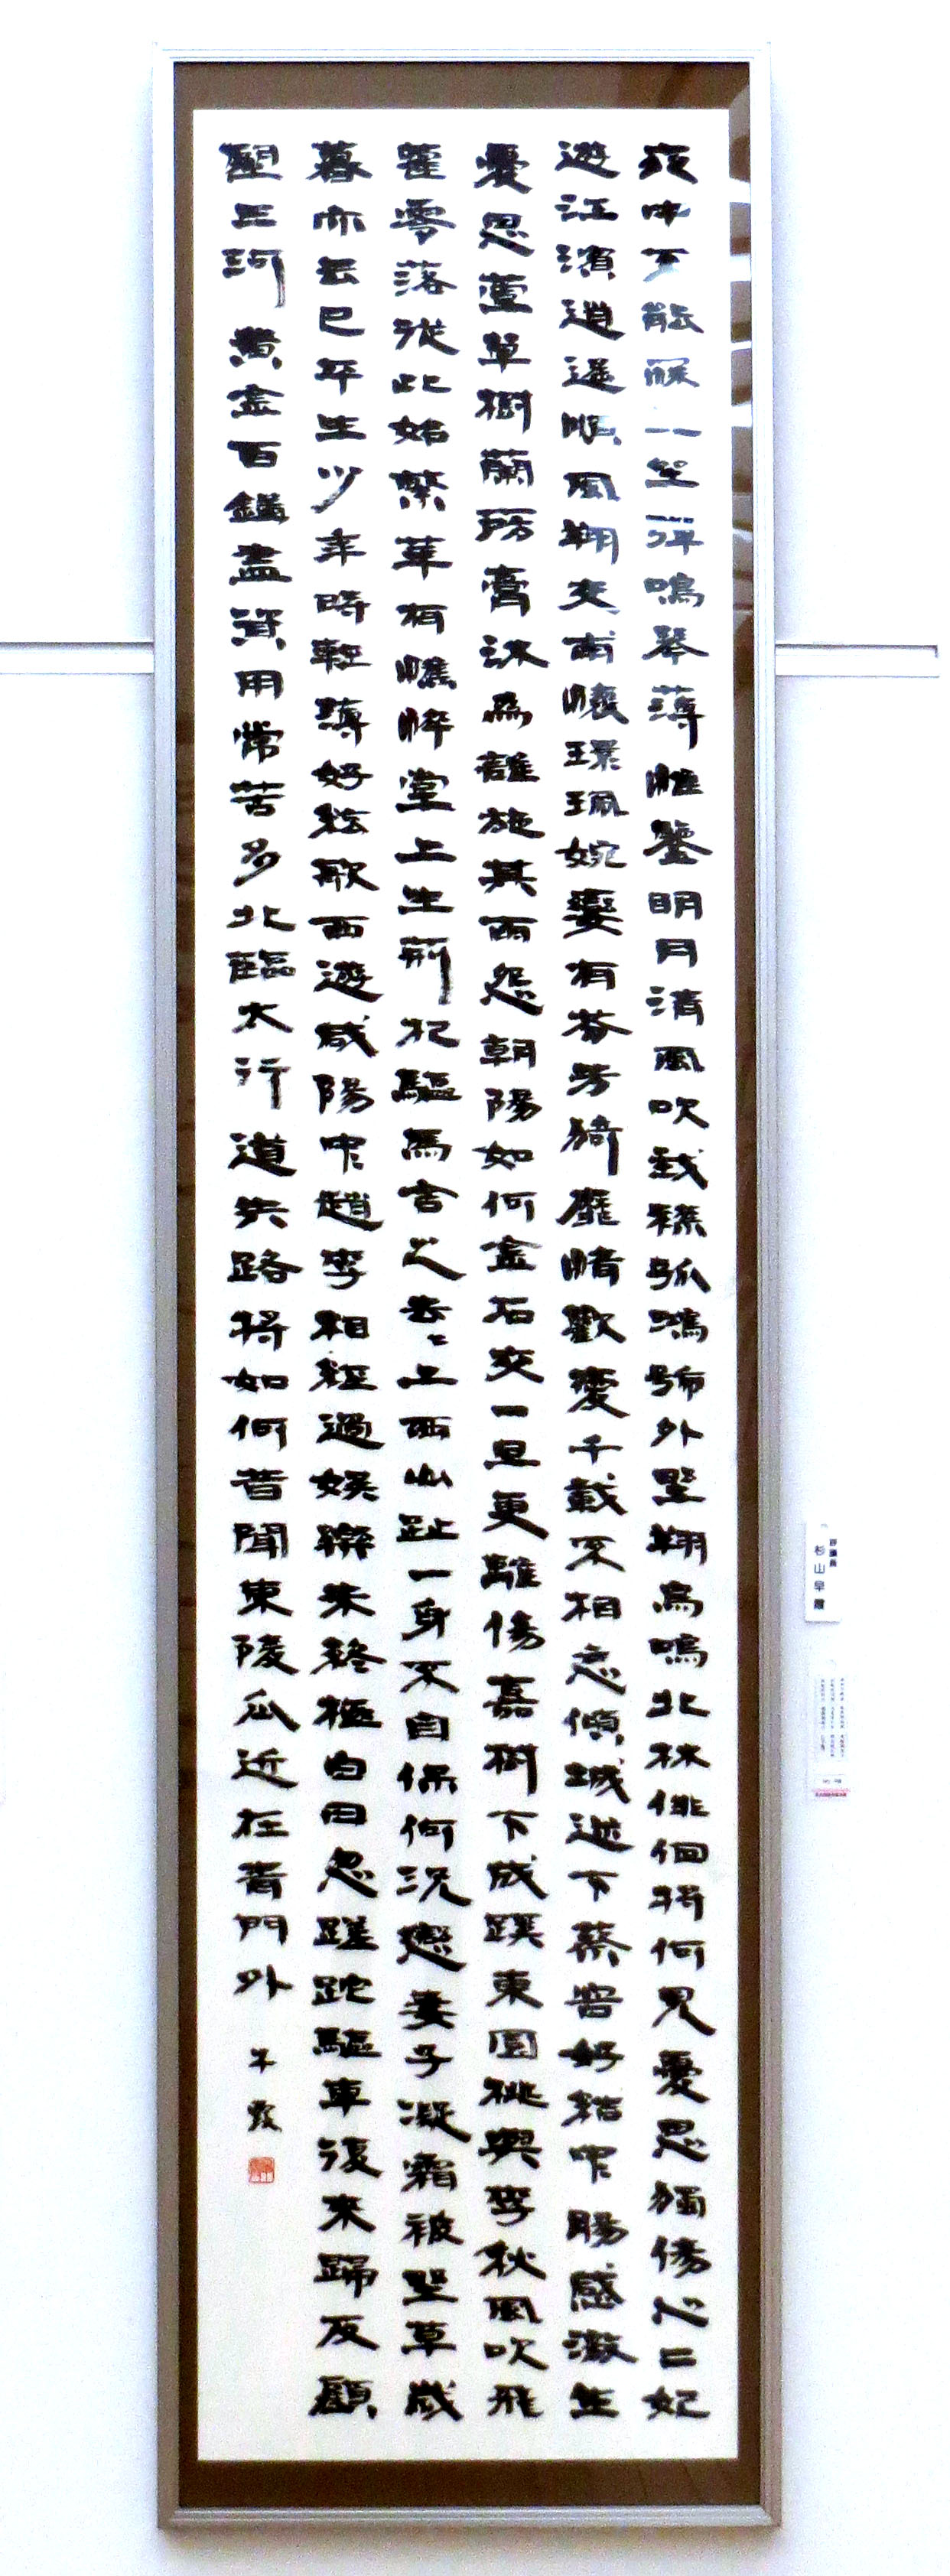 夜中不能寐一坐彈鳴琴薄帷鑒明月清風吹我襟孤鴻號外野翔鳥鳴北林徘徊將何見憂思獨傷心二妃
遊江濱逍遙順風翔交甫懷環珮婉孌有芬芳猗靡情歡愛千載不相忘傾城迷下蔡容好結中腸感激生
憂思萱草樹蘭房膏沐為誰施其雨怨朝陽如何金石交一旦更離傷嘉樹下成蹊東園桃與李秋風吹飛
藿零落從此始繁華有憔悴堂上生荊杞驅馬舍之去〻上西山趾一身不自保何況戀妻子凝霜被野草歲
暮亦云已平生少年時輕薄好絃歌西遊咸陽中趙李相經過娛樂未終極白日忽蹉跎驅車復來歸反顧
望三河黃金百鎰盡資用常苦多北臨太行道失路將如何昔聞東陵瓜近在青門外
早霞
評議員
杉山早霞